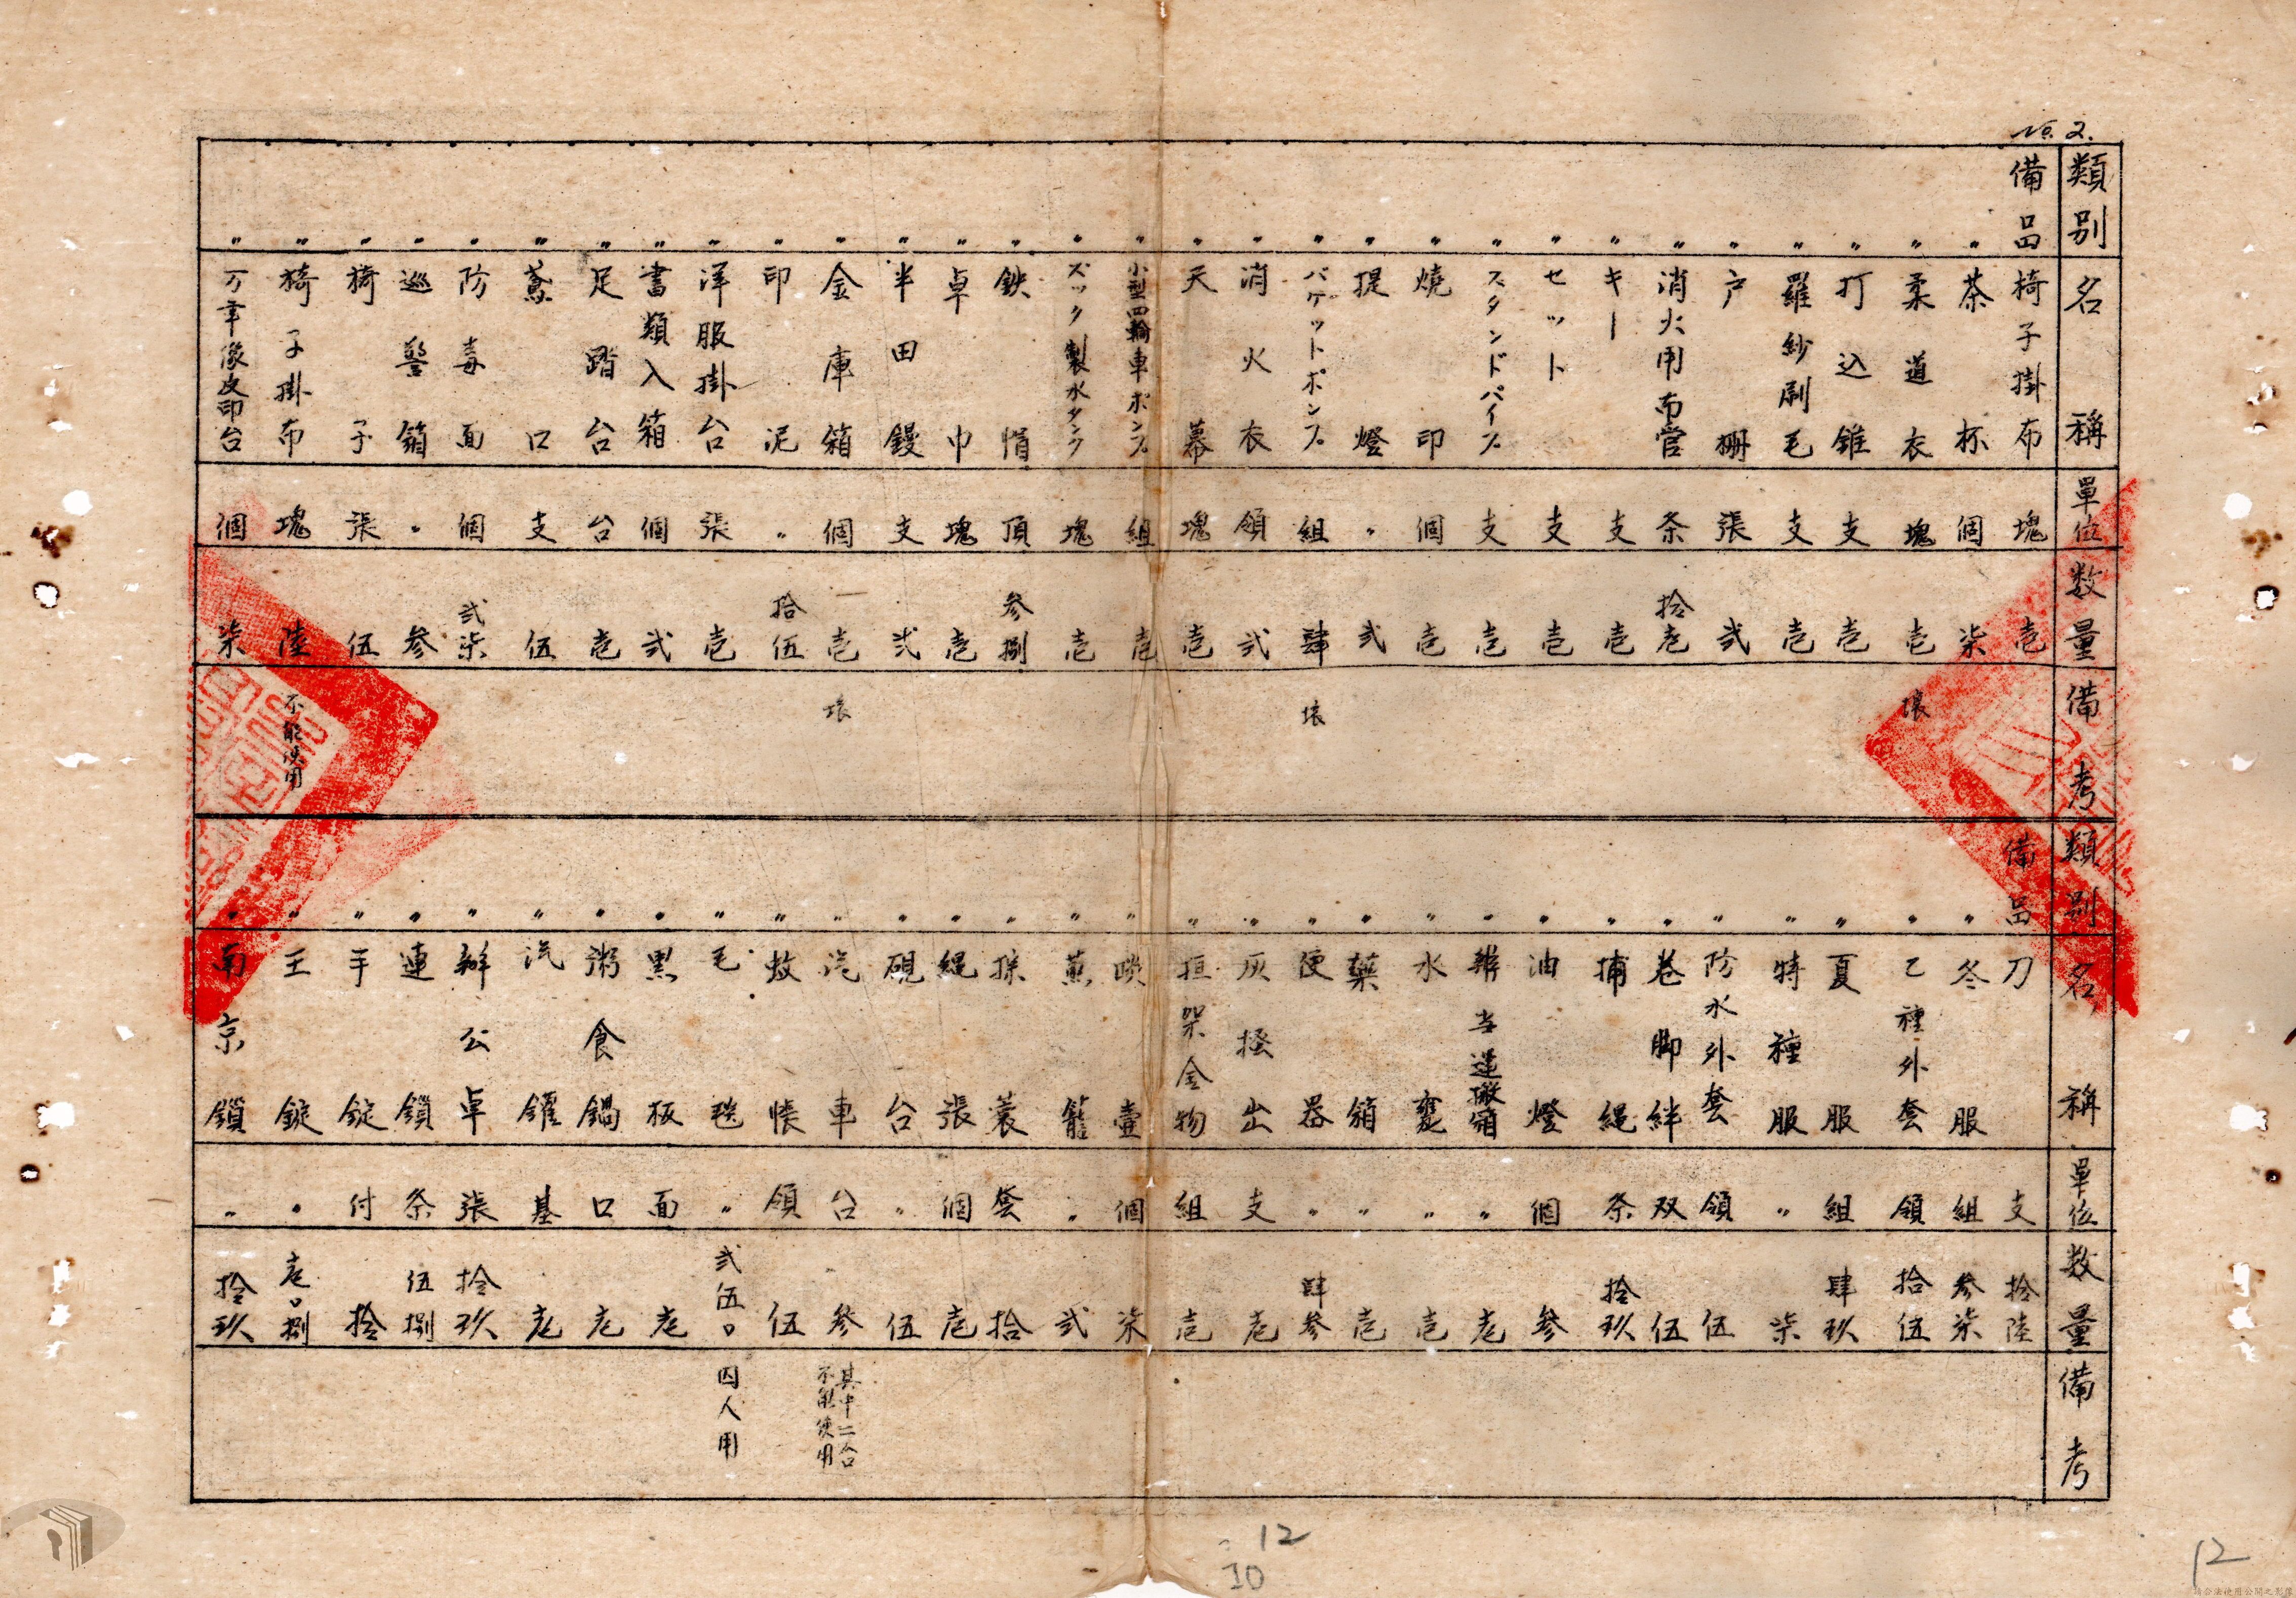 No. 2.
類別 名稱 單位 数量 備考
備品 椅子掛布 塊 壱
〃 茶杯 個 柒
〃 柔道衣 塊 壱 壊
〃 打込錐 支 壱
〃 羅紗刷毛 支 壱
〃 戸柵 張 弐
〃 消火用布管 条 拾壱
〃 キー 支 壱
〃 セット 支 壱
〃 スタンドパイプ 支 壱
〃 燒印 個 壱
〃 提燈 〃 弐
〃 バケットポンプ 組 肆 壊
〃 消火衣 領 弐
〃 天幕 塊 壱
〃 小型四輪車ポンプ 組 壱
〃 ズック製水タンク 塊 壱
〃 鉄帽 頂 参捌
〃 卓巾 塊 壱
〃 半田鏝 支 弐
〃 金庫箱 個 壱 壊
〃 印泥 〃 拾伍
〃 洋服掛台 張 壱
〃 書類入箱 個 弐
〃 足踏台 台 壱
〃 鳶口 支 伍
〃 防毒面 個 弐柒
〃 巡警箱 〃 参
〃 椅子 張 伍
〃 椅子掛布 塊 陸 不能使用
〃 万年像皮印台 個 柒
類別 名稱 單位 数量 備考
備品 刀 支 拾陸
〃 冬服 組 参柒
〃 乙種外套 領 拾伍
〃 夏服 組 肆玖
〃 特種服 〃 柒
〃 防水外套 領 伍
〃 卷脚絆 双 伍
〃 捕縄 条 拾玖
〃 油燈 個 参
〃 辨当運搬箱 〃 壱
〃 水甕 〃 壱
〃 藥箱 〃 壱
〃 便器 〃 肆参
〃 灰掻出 支 壱
〃 担架金物 組 壱
〃 痰壷 個 柒
〃 蒸籠 〃 弐
〃 蓑 套 拾
〃 縄張 個 壱
〃 硯台 〃 伍
〃 汽車 台 参 其中二台不能使用
〃 蚊帳 領 伍
〃 毛毯 〃 弐伍〇 囚人用
〃 黒板 面 壱
〃 粥食鍋 口 壱
〃 汽罐 基 壱
〃 辦公卓 張 拾玖
〃 連鎖 条 伍捌
〃 手錠 付 拾
〃 王錠 〃 壱〇捌
〃 南京鎖 〃 拾玖
12
10
12